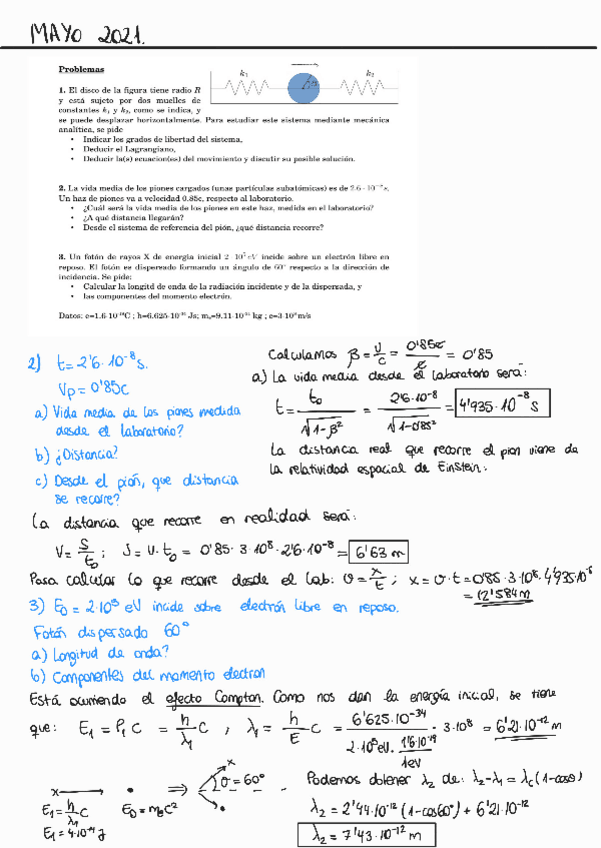 MAYO 2021.
Problemas
k₁ R k₂
1. El disco de la figura tiene radio R
y está sujeto por dos muelles de
constantes k₁ y k₂, como se indica, y
se puede desplazar horizontalmente. Para estudiar este sistema mediante mecánica
analítica, se pide
• Indicar los grados de libertad del sistema,
• Deducir el Lagrangiano,
• Deducir la(s) ecuacion(es) del movimiento y discutir su posible solución.
2. La vida media de los piones cargados (unas partículas subatómicas) es de 2.6 · 10⁻⁸ s.
Un haz de piones va a velocidad 0.85c, respecto al laboratorio.
• ¿Cuál será la vida media de los piones en este haz, medida en el laboratorio?
• ¿A qué distancia llegarán?
• Desde el sistema de referencia del pión, ¿qué distancia recorre?
3. Un fotón de rayos X de energía inicial 2 · 10⁵ eV incide sobre un electrón libre en
reposo. El fotón es dispersado formando un ángulo de 60° respecto a la dirección de
incidencia. Se pide:
• Calcular la longitd de onda de la radiación incidente y de la dispersada, y
• las componentes del momento electrón.
Datos: e=1.6·10⁻¹⁹C ; h=6.625·10⁻³⁴ Js; mₑ=9.11·10⁻³¹ kg ; c=3·10⁸m/s
2) t = 2'6·10⁻⁸ s.
Vp = 0'85c
a) Vida media de los piones medida
desde el laboratorio?
b) ¿Distancia?
c) Desde el pión, que distancia
se recorre?
Calculamos β = v/c = 0'85c/c = 0'85
a) La vida media desde el laboratorio será:
t = t₀/√(1-β²) = 2'6·10⁻⁸/√(1-0'85²) = 4'935·10⁻⁸ s
La distancia real que recorre el pion viene de
la relatividad espacial de Einstein:
La distancia que recorre en realidad será:
V = S/t₀ ; S = v·t₀ = 0'85·3·10⁸·2'6·10⁻⁸ = 6'63 m
Para calcular lo que recorre desde el lab: v = x/t ; x = v·t = 0'85·3·10⁸·4'935·10⁻⁸
= 12'584 m
3) E₀ = 2·10⁵ eV incide sobre electrón libre en reposo.
Fotón dispersado 60°
a) Longitud de onda?
b) Componentes del momento electron
Está ocurriendo el efecto Compton. Como nos dan la energía inicial, se tiene
que: E₁ = P₁ C = h/λ₁ C , λ₁ = h/E C = 6'625·10⁻³⁴/2·10⁵eV· 1'6·10⁻¹⁹/1eV · 3·10⁸ = 6'21·10⁻¹² m
x ⟶ • ⟹ x θ = 60°
E₁ = h/λ₁ C E₀ = mₑC²
E₁ = 4·10⁻¹⁴ J
Podemos obtener λ₂ de: λ₂-λ₁ = λc (1-cosθ)
λ₂ = 2'44·10⁻¹² (1-cos60°) + 6'21·10⁻¹²
λ₂ = 7'43·10⁻¹² m